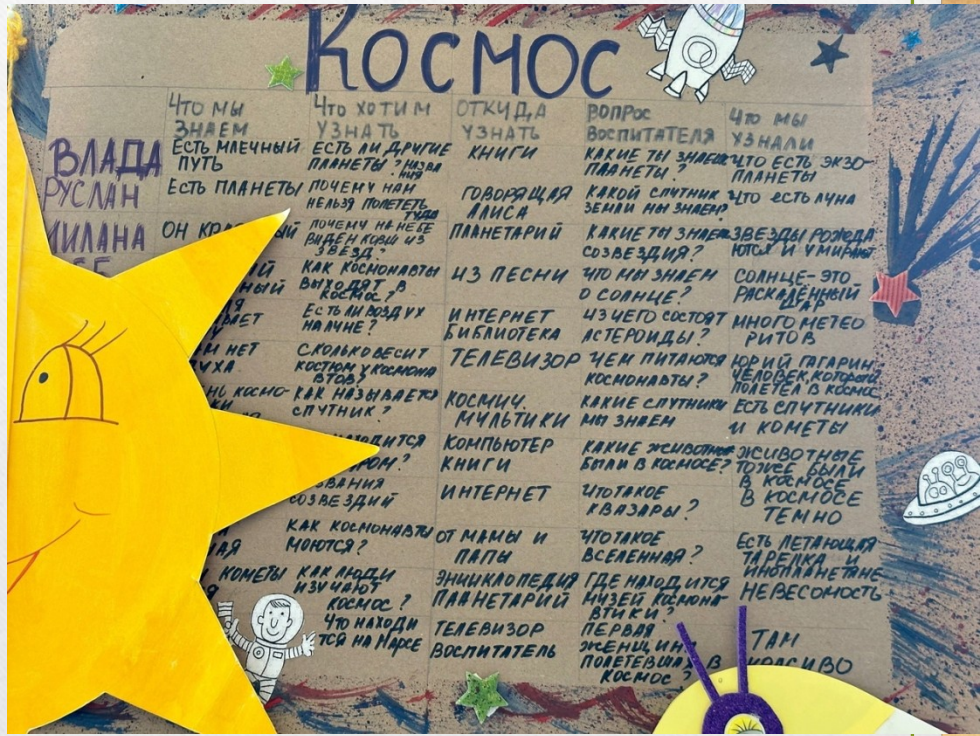 КОСМОС
ЧТО МЫ ЗНАЕМ
ЧТО ХОТИМ УЗНАТЬ
ОТКУДА УЗНАТЬ
ВОПРОС ВОСПИТАТЕЛЯ
ЧТО МЫ УЗНАЛИ
ВЛАДА
ЕСТЬ МЛЕЧНЫЙ ПУТЬ
ЕСТЬ ЛИ ДРУГИЕ ПЛАНЕТЫ? НАЗВАНИЯ
КНИГИ
КАКИЕ ТЫ ЗНАЕШЬ ПЛАНЕТЫ?
ЧТО ЕСТЬ ЭКЗО-ПЛАНЕТЫ
РУСЛАН
ЕСТЬ ПЛАНЕТЫ
ПОЧЕМУ НАМ НЕЛЬЗЯ ПОЛЕТЕТЬ ТУДА
ГОВОРЯЩАЯ АЛИСА
КАКОЙ СПУТНИК ЗЕМЛИ МЫ ЗНАЕМ?
ЧТО ЕСТЬ ЛУНА
МИЛАНА
ОН
ПОЧЕМУ НА НЕБЕ ВИДЕН КОВШ ИЗ ЗВЕЗД?
ПЛАНЕТАРИЙ
КАКИЕ ТЫ ЗНАЕШЬ СОЗВЕЗДИЯ?
ЗВЕЗДЫ РОЖДАЮТСЯ И УМИРАЮТ
КАК КОСМОНАВТЫ ВЫХОДЯТ В КОСМОС?
ИЗ ПЕСНИ
ЧТО МЫ ЗНАЕМ О СОЛНЦЕ?
СОЛНЦЕ-ЭТО РАСКАЛЁННЫЙ ШАР
ЕСТЬ ЛИ ВОЗДУХ НА ЛУНЕ?
ИНТЕРНЕТ БИБЛИОТЕКА
ИЗ ЧЕГО СОСТОЯТ АСТЕРОИДЫ?
МНОГО МЕТЕОРИТОВ
НЕТ
СКОЛЬКО ВЕСИТ КОСТЮМ У КОСМОНАВТОВ?
ТЕЛЕВИЗОР
ЧЕМ ПИТАЮТСЯ КОСМОНАВТЫ?
ЮРИЙ ГАГАРИН, ЧЕЛОВЕК, КОТОРЫЙ ПОЛЕТЕЛ В КОСМОС
КОСМО-
КАК НАЗЫВАЕТСЯ СПУТНИК?
КОСМИЧ. МУЛЬТИКИ
КАКИЕ СПУТНИКИ МЫ ЗНАЕМ
ЕСТЬ СПУТНИКИ И КОМЕТЫ
КОМПЬЮТЕР КНИГИ
КАКИЕ ЖИВОТНЫЕ БЫЛИ В КОСМОСЕ?
ЖИВОТНЫЕ ТОЖЕ БЫЛИ В КОСМОСЕ
СОЗВЕЗДИЙ
ИНТЕРНЕТ
ЧТО ТАКОЕ КВАЗАРЫ?
В КОСМОСЕ ТЕМНО
КАК КОСМОНАВТЫ МОЮТСЯ?
ОТ МАМЫ И ПАПЫ
ЧТО ТАКОЕ ВСЕЛЕННАЯ?
ЕСТЬ ЛЕТАЮЩАЯ ТАРЕЛКА И ИНОПЛАНЕТЯНЕ
КОМЕТЫ
КАК ЛЮДИ ИЗУЧАЮТ КОСМОС?
ЭНЦИКЛОПЕДИЯ ПЛАНЕТАРИЙ
ГДЕ НАХОДИТСЯ МУЗЕЙ КОСМОНАВТИКИ?
НЕВЕСОМОСТЬ
ЧТО НАХОДИТСЯ НА МАРСЕ
ТЕЛЕВИЗОР ВОСПИТАТЕЛЬ
ПЕРВАЯ ЖЕНЩИНА ПОЛЕТЕВШАЯ В КОСМОС?
ТАМ КРАСИВО